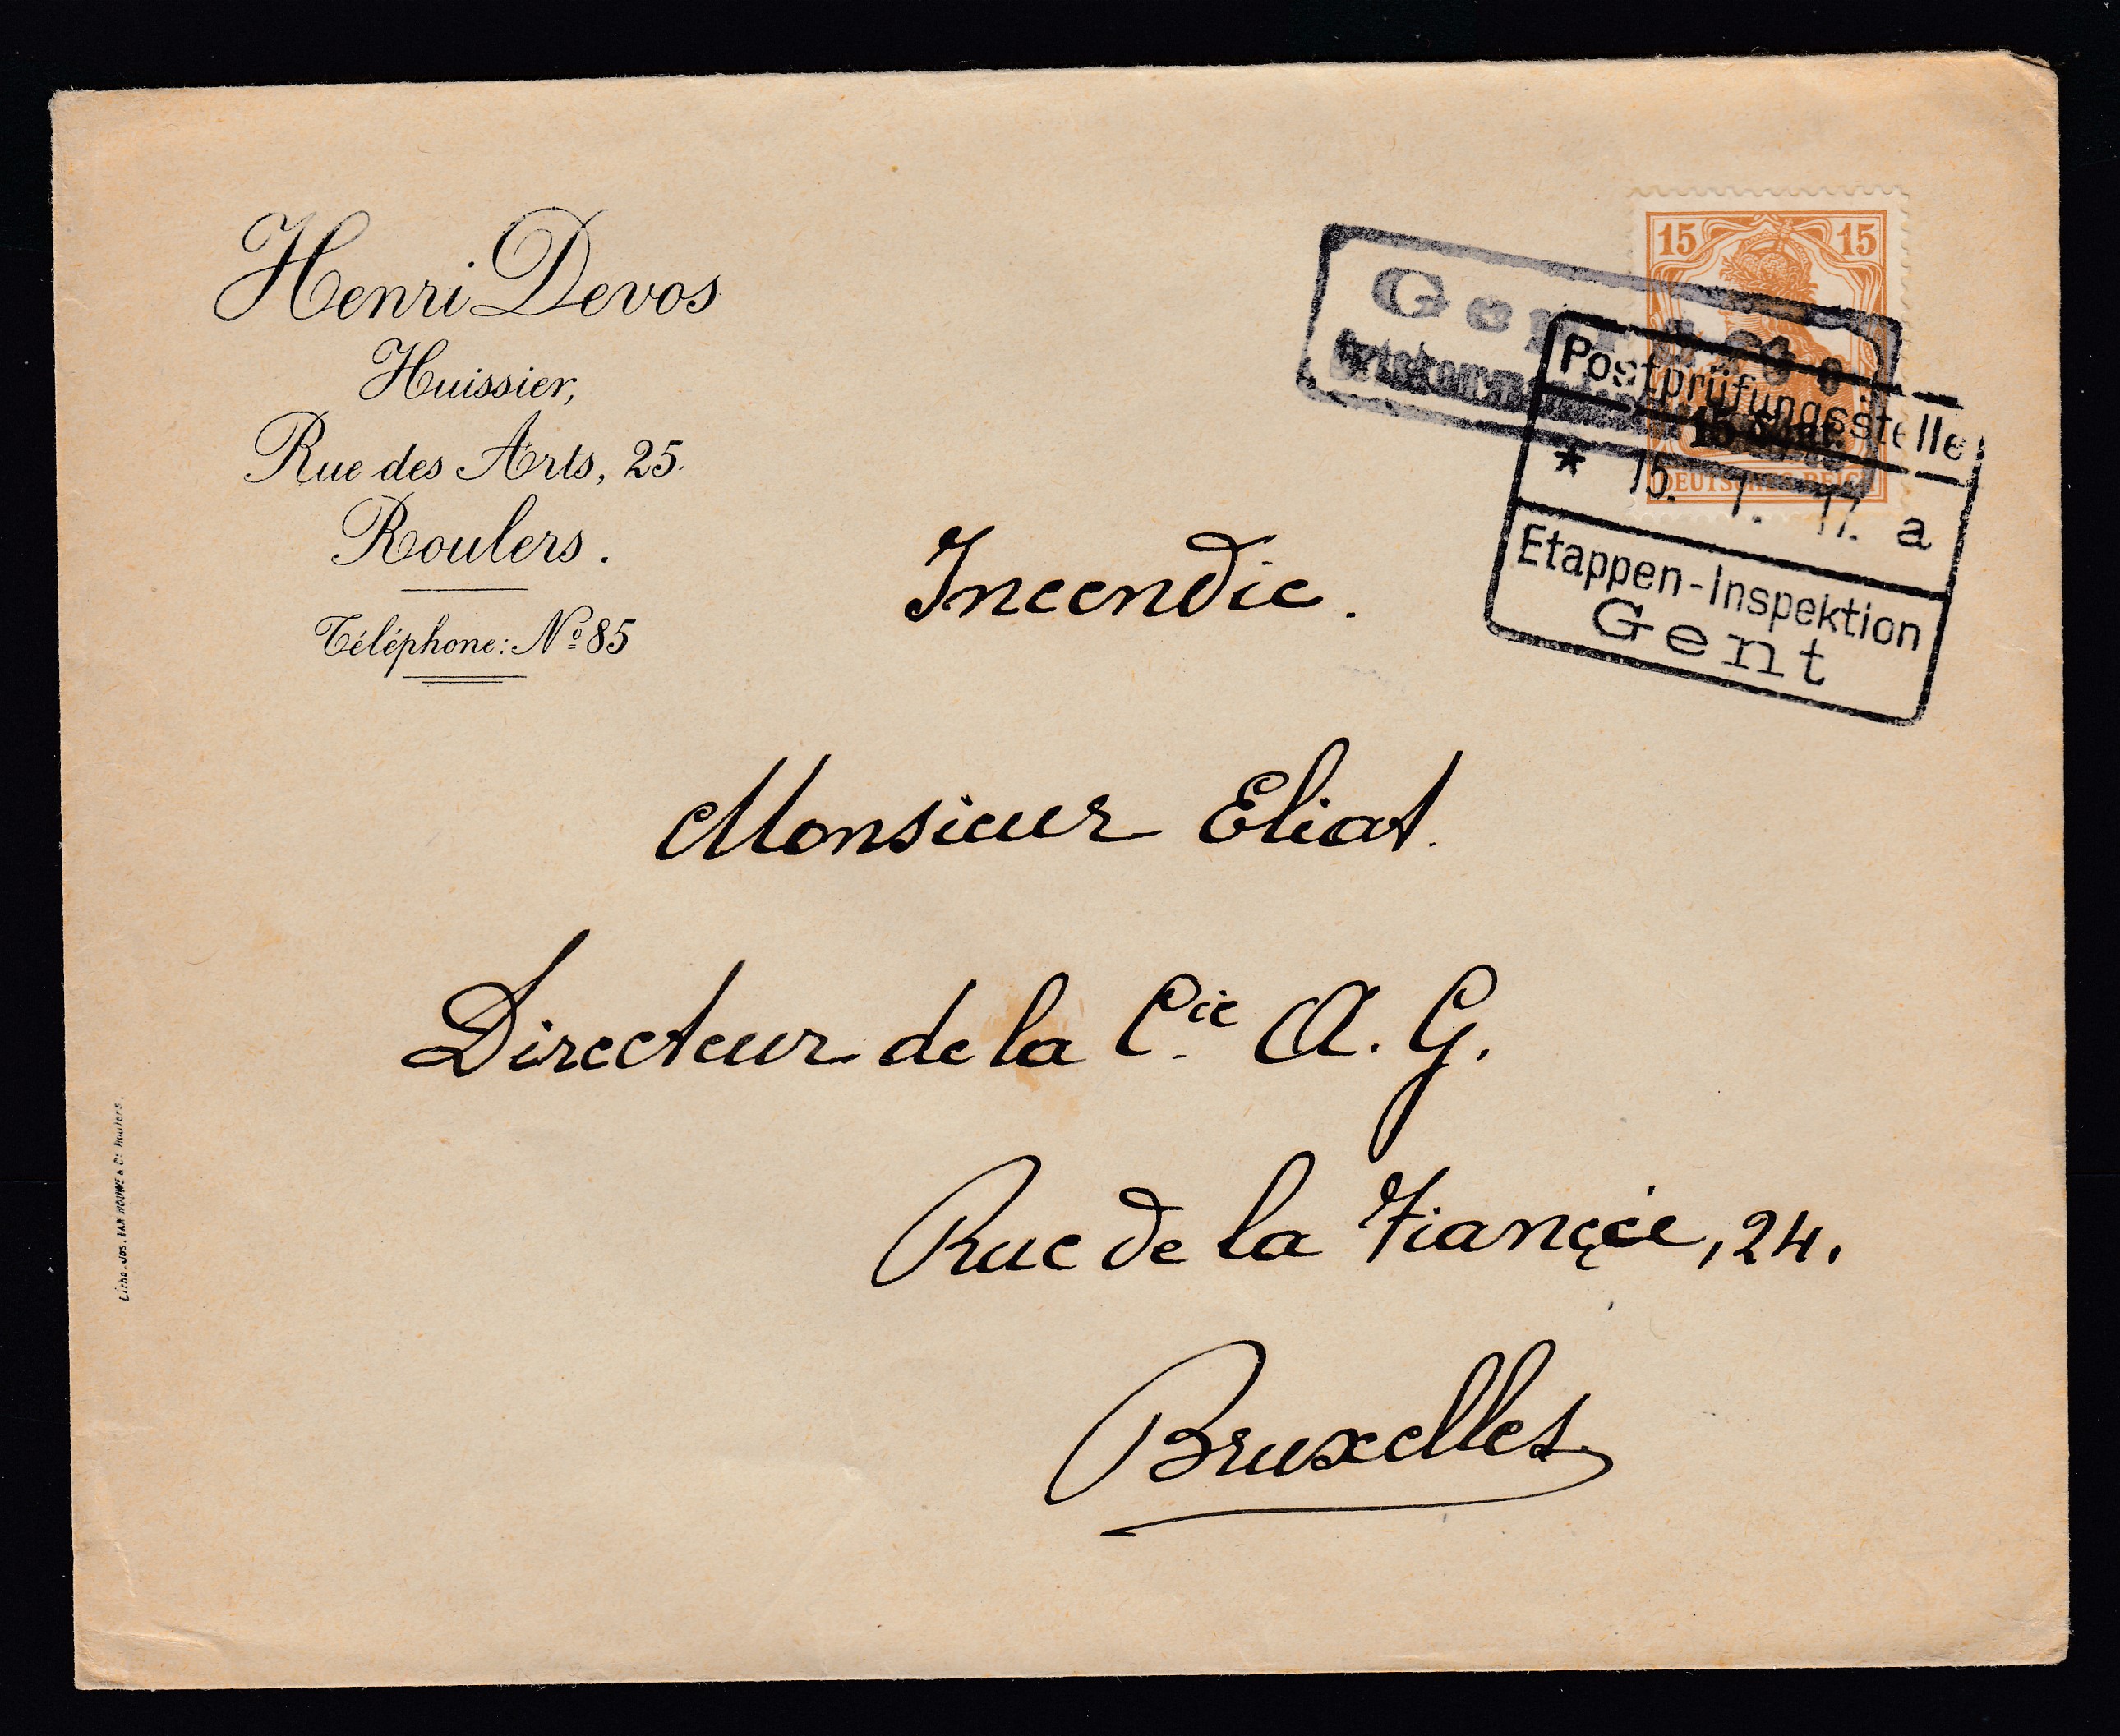 Henri Devos
Huissier,
Rue des Arts, 25.
Roulers.
Téléphone: Nº 85
15 15
DEUTSCHES REICH
15 Cent.
Postprüfungsstelle
* 15. 1. 17. a
Etappen-Inspektion
Gent
Incendie.
Monsieur Eliat.
Directeur de la Cie A. G.
Rue de la Fiancée, 24.
Bruxelles
Litho. Jos. VAN HOUWE & Cº Roulers.